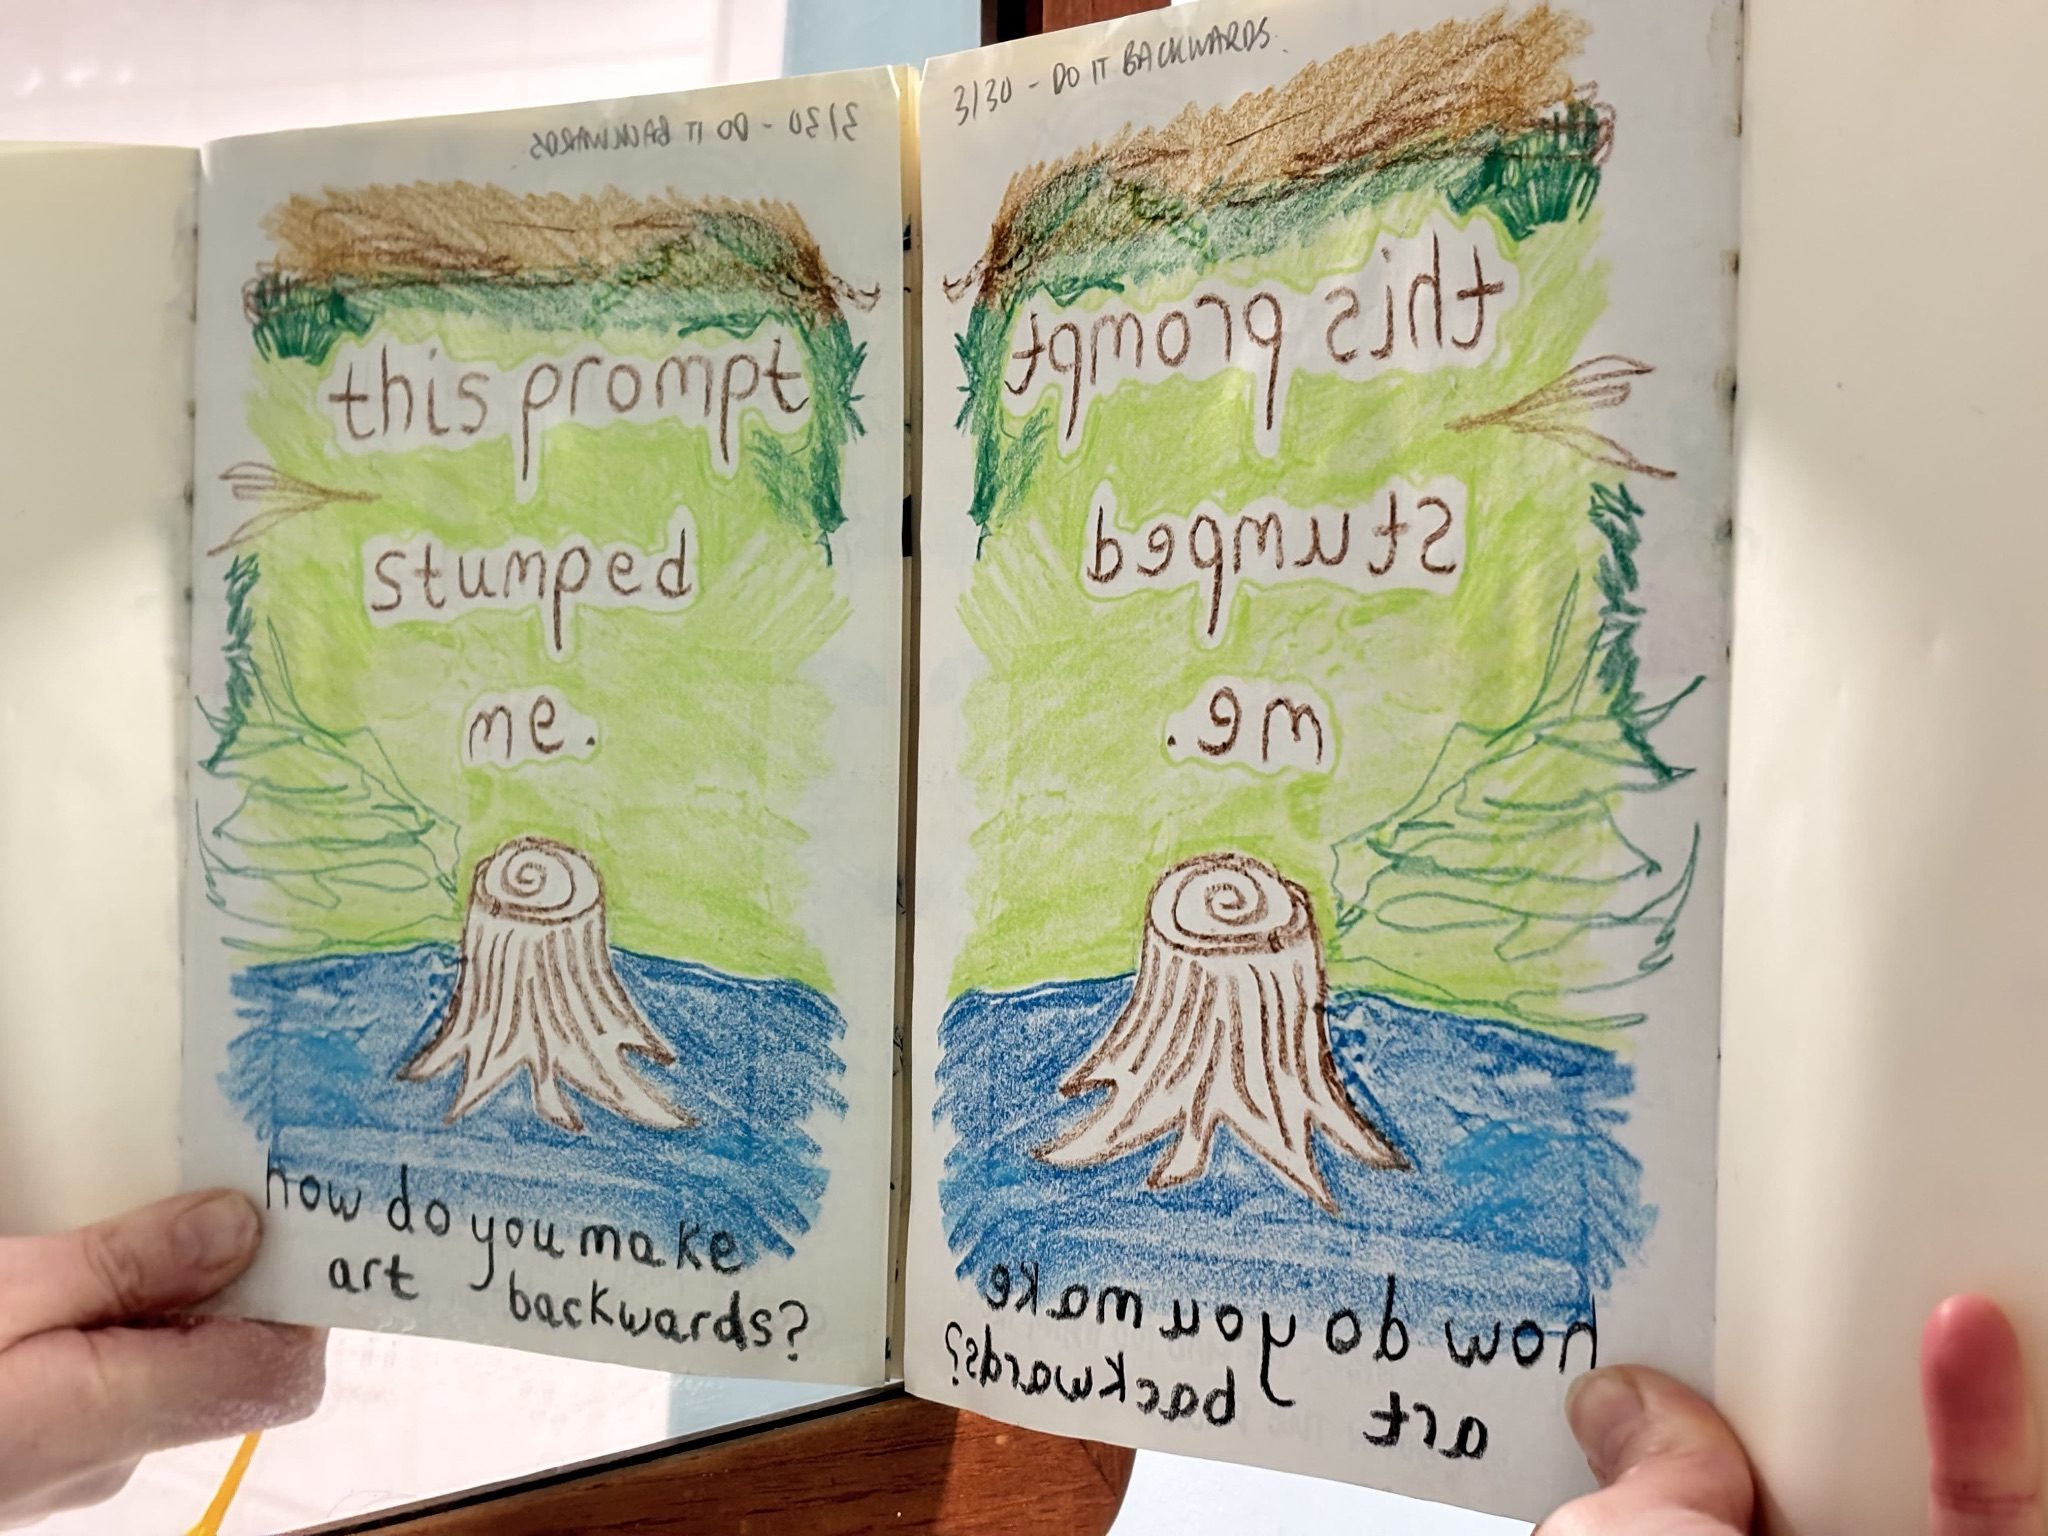 3/30 - DO IT BACKWARDS
this prompt
stumped
me.
how do you make
art backwards?
3/30 - DO IT BACKWARDS.
this prompt
stumped
me.
how do you make
art backwards?